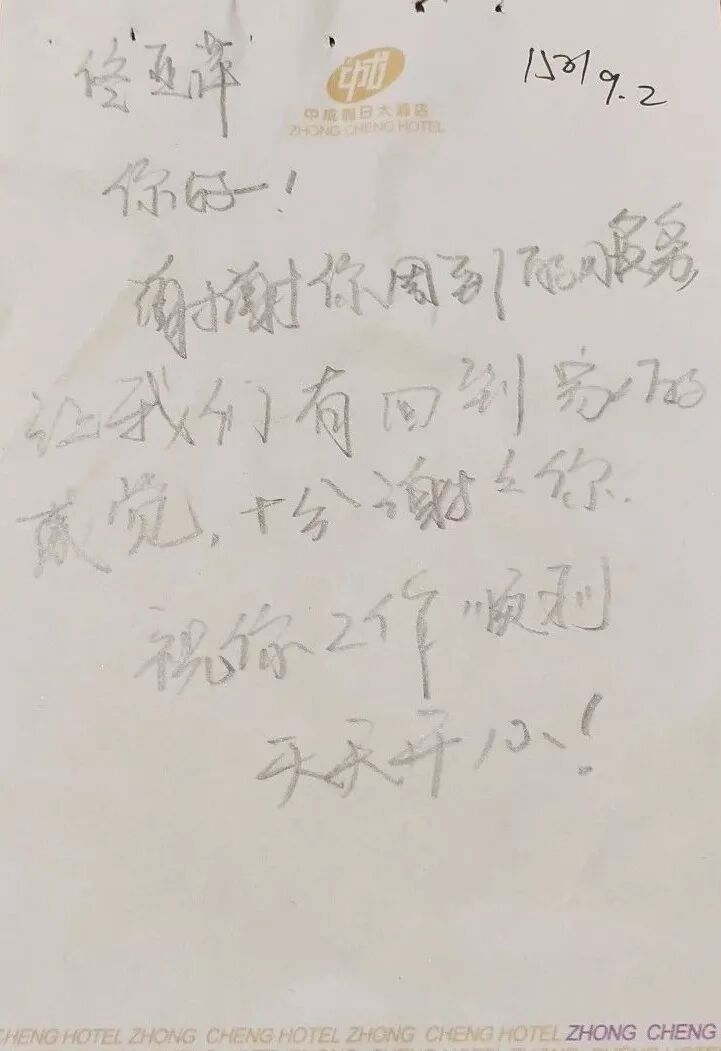 佟亚萍
中成假日大酒店
ZHONG CHENG HOTEL
9.2
你好!
谢谢你周到的服务,
让我们有回到家的
感觉,十分谢谢你.
祝你工作顺利
天天开心!
CHENG HOTEL ZHONG CHENG HOTEL ZHONG CHENG HOTEL ZHONG CHENG